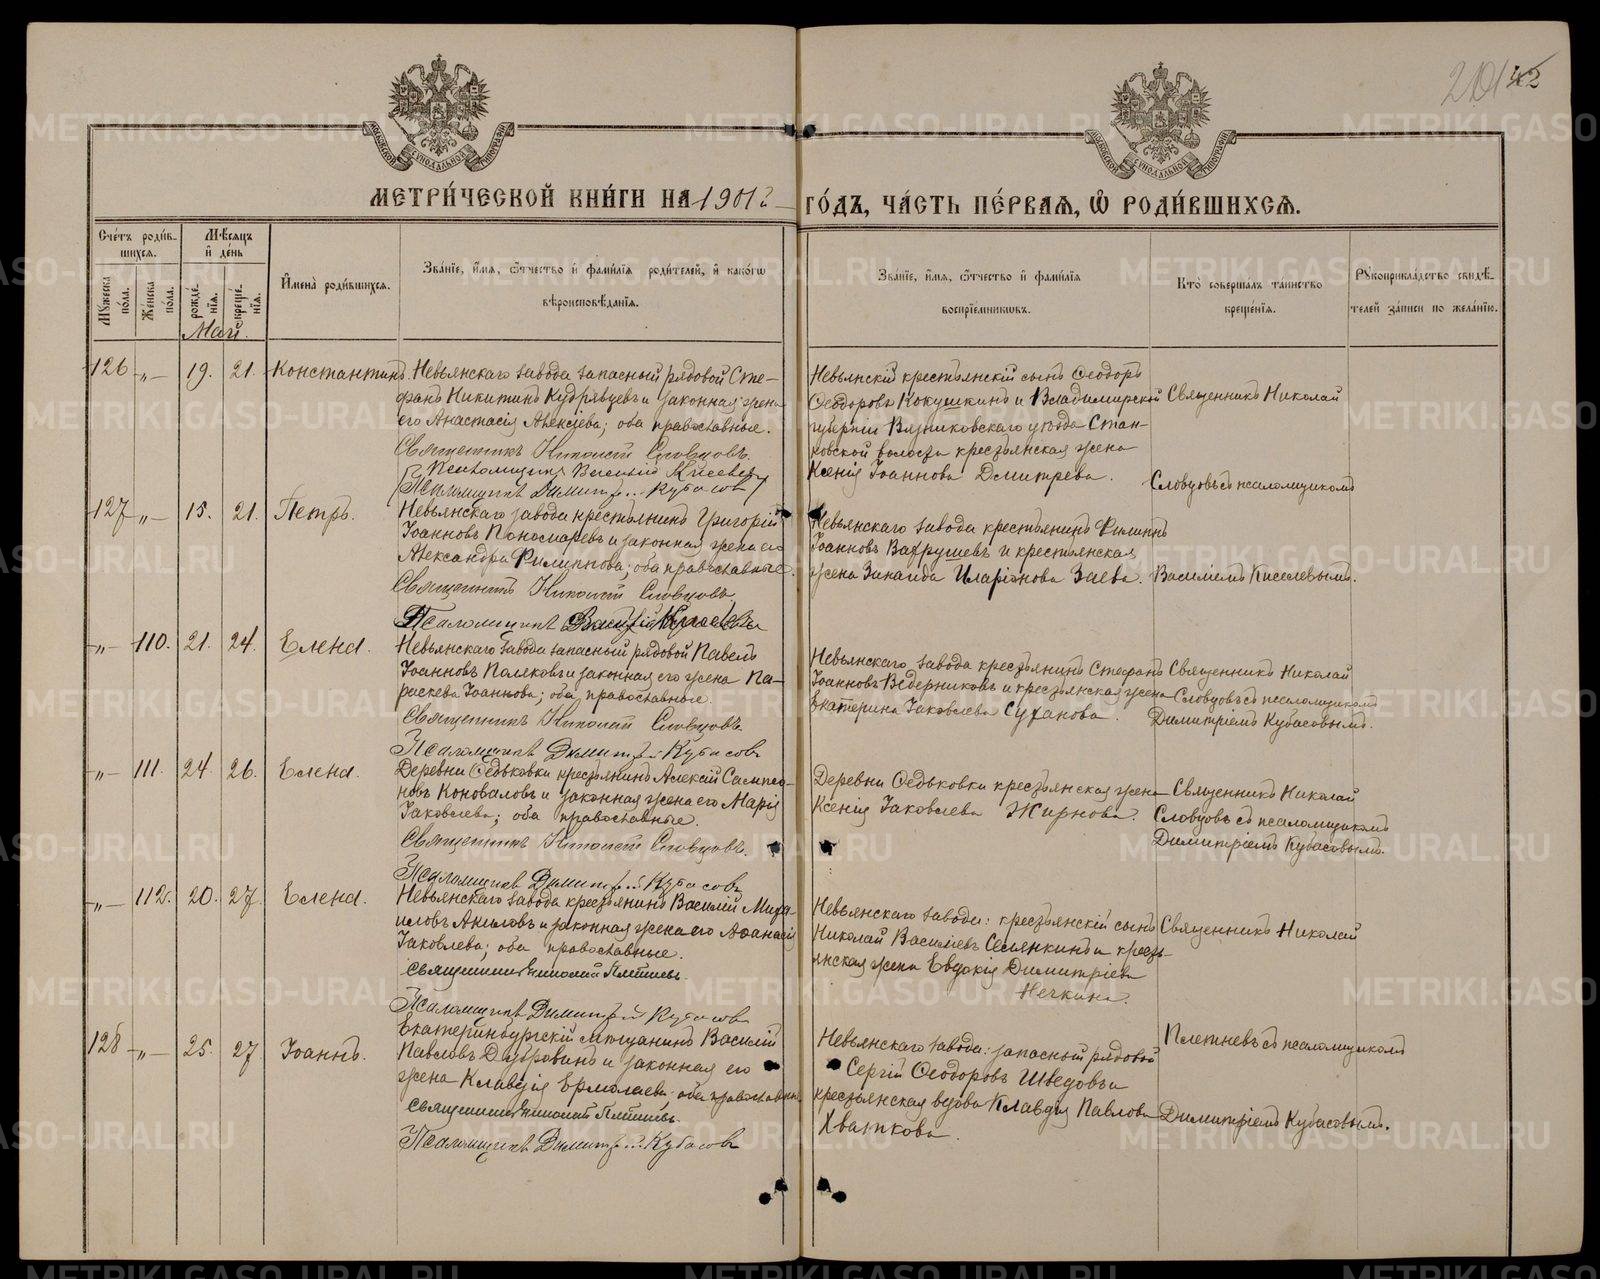 210 42
МОСКОВСКОЙ СѴНОДАЛЬНОЙ ТИПОГРАФІИ
МОСКОВСКОЙ СѴНОДАЛЬНОЙ ТИПОГРАФІИ
МЕТРИ́ЧЕСКОЙ КНИ́ГИ НА 1901й
ГО́ДЪ, ЧА́СТЬ ПЕ́РВАѦ, Ѽ РОДИ́ВШИХСѦ.
Сче́тъ роди́в-
шихся.
Мѣ́сяцъ
и де́нь
Мꙋ́жеска по́ла.
Же́нска по́ла.
рожде́-
нїѧ.
креще́-
нїѧ.
Имена̀ роди́вшихсѧ.
Зва́нїе, и́мѧ, ѻ́тчество и фами́лїѧ роди́телей, и како́гѡ
вѣроисповѣ́данїѧ.
Зва́нїе, и́мѧ, ѻ́тчество и фами́лїѧ
воспрїе́мникѡвъ.
Кто̀ соверша́лъ та́инство
креще́нїѧ.
Рꙋкоприкла́дство свидѣ́-
телей за́писи по жела́нїю.
Май.
126 -„- 19. 21. Константинъ.
Невьянскаго завода запасный рядовой Сте-
фанъ Никитинъ Кудрявцевъ и законная жена
его Анастасія Алексіева; оба православные.
Священникъ Николай Словцовъ.
Псаломщикъ Василій Киселевъ
Псаломщикъ Димитрій Кубасовъ
Невьянскій крестьянскій сынъ Ѳеодоръ
Ѳеодоровъ Кокушкинъ и Владимирской
губерніи Вязниковскаго уѣзда Стан-
ковской волости крестьянская жена
Ксенія Іоаннова Дмитрева.
Священникъ Николай
Словцовъ съ псаломщикомъ
127 -„- 15. 21. Петръ.
Невьянскаго завода крестьянинъ Григорій
Іоанновъ Пономаревъ и законная жена его
Александра Филиппова; оба православные.
Священникъ Николай Словцовъ
Псаломщикъ Василій Киселевъ
Невьянскаго завода крестьянинъ Филиппъ
Іоанновъ Вахрушевъ и крестьянская
жена Зинаида Иларіонова Заева.
Василіемъ Киселевымъ.
-„- 110. 21. 24. Елена.
Невьянскаго завода запасный рядовой Павелъ
Іоанновъ Поляковъ и законная его жена Па-
раскева Іоаннова; оба православные.
Священникъ Николай Словцовъ.
Псаломщикъ Димитрій Кубасовъ
Невьянскаго завода крестьянинъ Стефанъ
Іоанновъ Ведерниковъ и крестьянская жена
Екатерина Іаковлева Суханова.
Священникъ Николай
Словцовъ съ псаломщикомъ
Димитріемъ Кубасовымъ.
-„- 111. 24. 26. Елена.
Деревни Ѳедьковки крестьянинъ Алексій Сампсо-
новъ Коноваловъ и законная жена его Марія
Іаковлева; оба православные.
Священникъ Николай Словцовъ.
Псаломщикъ Димитрій Кубасовъ
Деревни Ѳедьковки крестьянская жена
Ксенія Іаковлева Жирнова.
Священникъ Николай
Словцовъ съ псаломщикомъ
Димитріемъ Кубасовымъ.
-„- 112. 20. 27. Елена.
Невьянскаго завода крестьянинъ Василій Миха-
иловъ Акиловъ и законная жена его Аѳанасія
Іаковлева; оба православные.
Священникъ Николай Плетневъ.
Псаломщикъ Димитрій Кубасовъ
Невьянскаго завода: крестьянскій сынъ
Николай Василіевъ Селянкинъ и кресть-
янская жена Евдокія Димитріева
Нечкина.
Священникъ Николай
128 -„- 25. 27 Іоаннъ.
Екатеринбургскій мѣщанинъ Василій
Павловъ Дубровинъ и законная его
жена Клавдія Ермолаева; оба православные.
Священникъ Николай Плетневъ.
Псаломщикъ Димитрій Кубасовъ
Невьянскаго завода: запасный рядовой
Сергій Ѳеодоровъ Шведовъ и
крестьянская вдова Клавдія Павлова
Хваткова.
Плетневъ съ псаломщикомъ
Димитріемъ Кубасовымъ.
METRIKI.GASO-URAL.RU